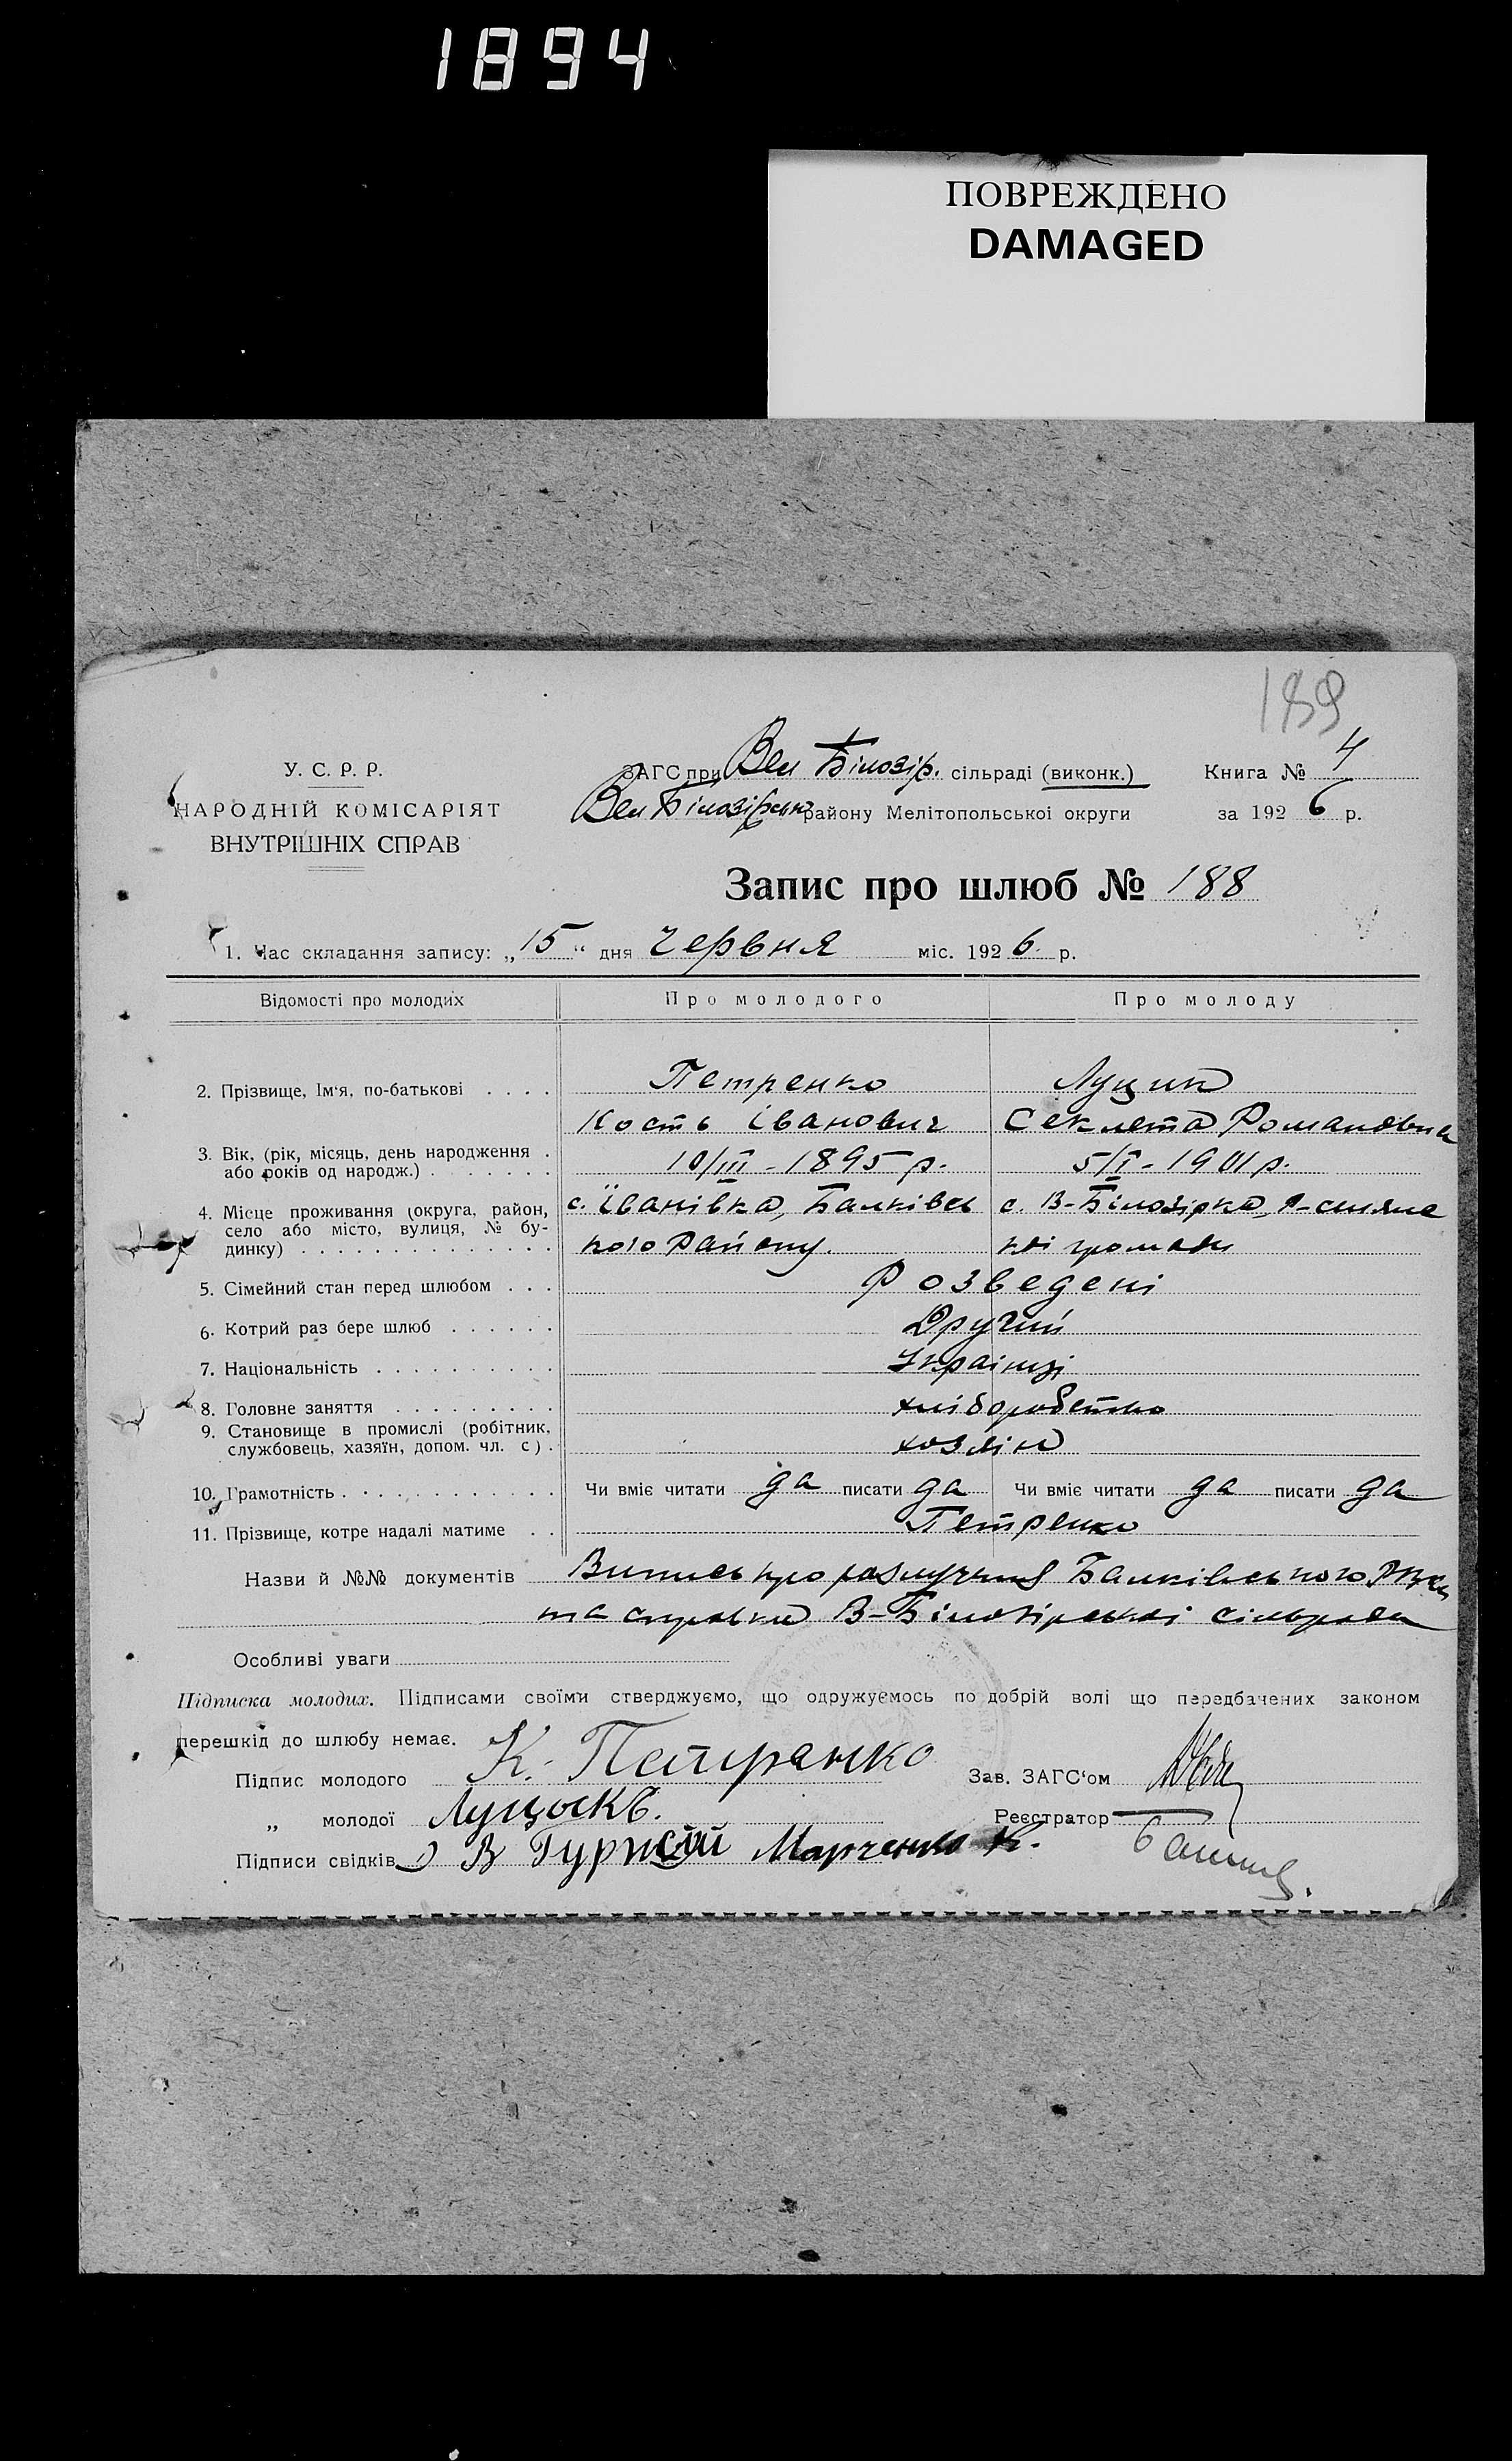 1894
ПОВРЕЖДЕНО
DAMAGED
189
У. С. Р. Р.
НАРОДНІЙ КОМІСАРІЯТ
ВНУТРІШНІХ СПРАВ
ЗАГС при Вел Білозір. сільраді (виконк.)
Книга № 4
Вел Білозірськ району Мелітопольської округи
за 1926 р.
Запис про шлюб № 188
1. Час складання запису: „15“ дня червня міс. 1926 р.
Відомості про молодих
Про молодого
Про молоду
2. Прізвище, Ім‘я, по-батькові . . . .
Петренко
Луцик
Кость Іванович
Секлета Романовна
3. Вік, (рік, місяць, день народження .
або років од народж.) . . . . . . .
10/III - 1895 р.
5/I - 1901 р.
4. Місце проживання (округа, район,
село або місто, вулиця, № бу-
динку) . . . . . . . . . . . . . .
с. Іванівка, Балківсь
кого Району.
с. В-Білозірка,
кої громади
5. Сімейний стан перед шлюбом . . .
Розведені
6. Котрий раз бере шлюб . . . . . .
Другий
7. Національність . . . . . . . . . .
Українці
8. Головне заняття . . . . . . . . .
хліборобство
9. Становище в промислі (робітник,
службовець, хазяїн, допом. чл. с) .
хозяіна
10. Грамотність . . . . . . . . . . . .
Чи вміє читати да писати да
Чи вміє читати да писати да
11. Прізвище, котре надалі матиме . .
Петренко
Назви й №№ документів Випись про разлучення Балківського
та справка В-Білозірської сільради
Особливі уваги
Підписка молодих. Підписами своїми стверджуємо, що одружуємось по добрій волі що передбачених законом
перешкід до шлюбу немає.
Підпис молодого К. Петренко
Зав. ЗАГС‘ом
„ молодої Луцыкъ.
Реєстратор
Підписи свідків В Гуржой Марченко К.